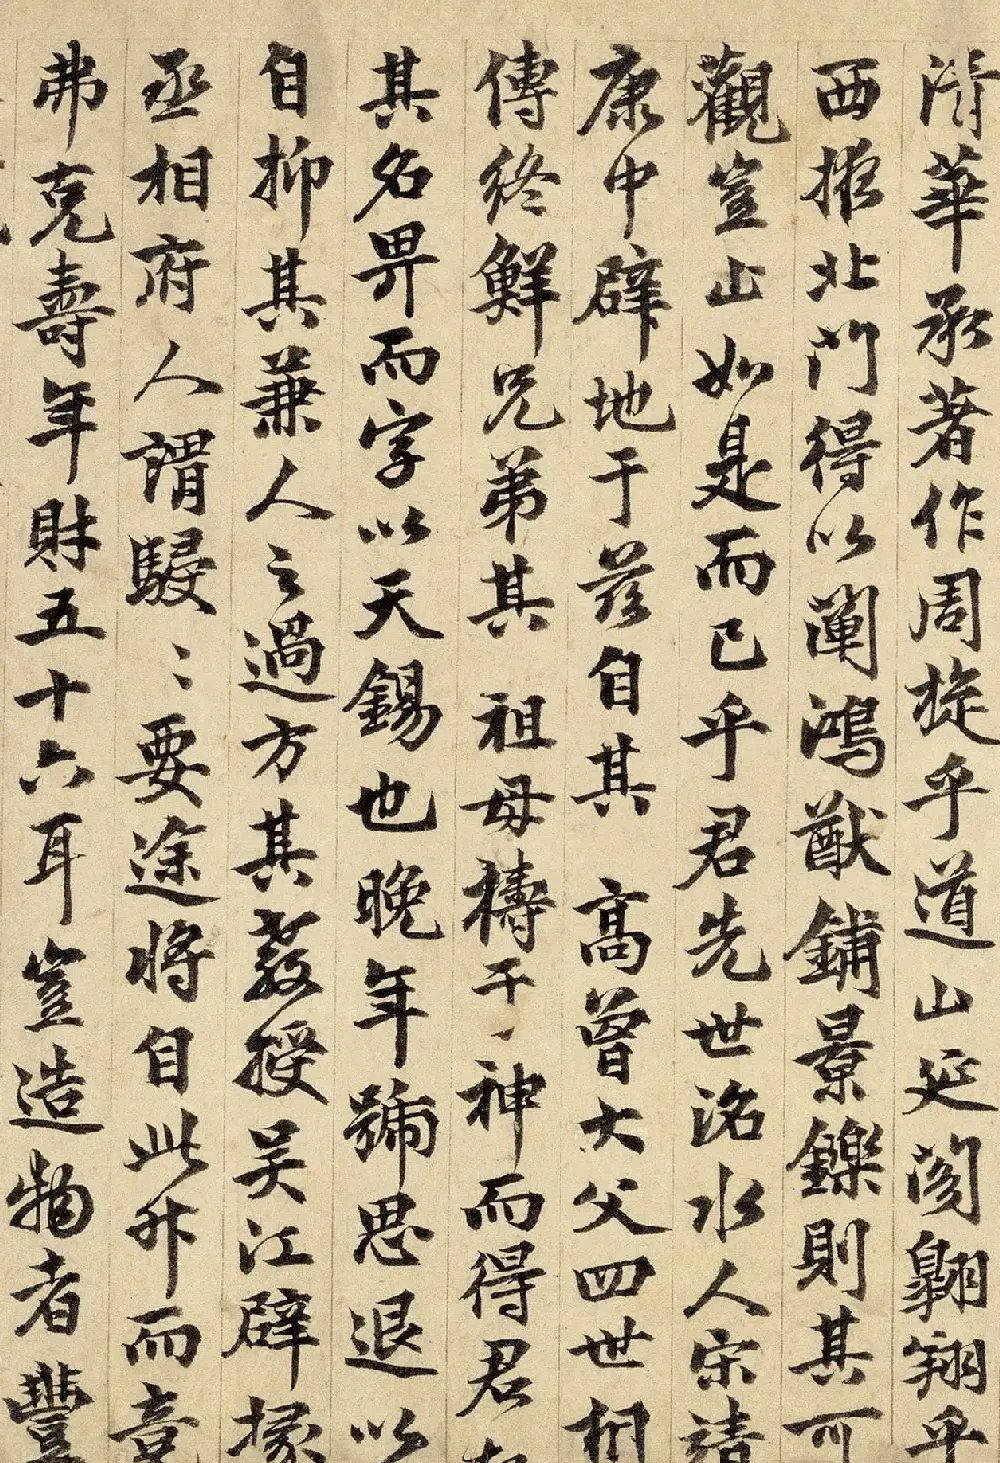 清華承著作周旋乎道山延閣翱翔乎
西掖北門得以闡鴻猷鋪景鑠則其可
觀豈止如是而已乎君先世洺水人宋靖
康中辟地于茲自其高曾大父四世相
傳終鮮兄弟其祖母禱于神而得君
其名畀而字以天錫也晚年號思退以
自抑其兼人之過方其教授吳江辟掾
丞相府人謂駸〻要途將自此升而竟
弗克壽年財五十六耳豈造物者豐